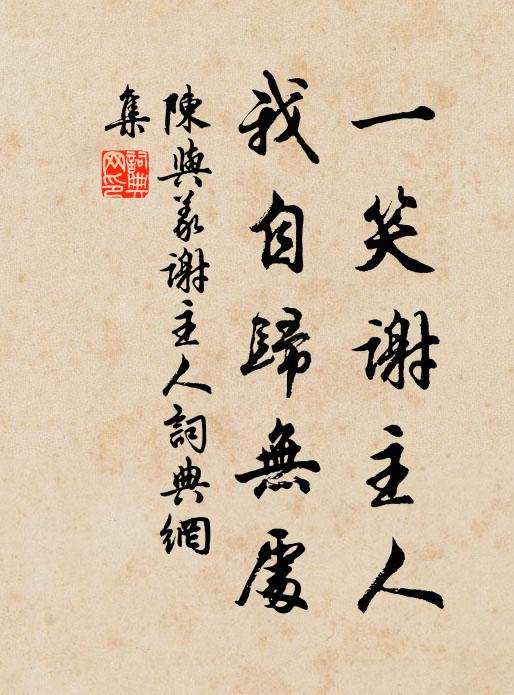 一笑謝主人
我自歸無處
陳與義謝主人詞典網
集
詞典網印